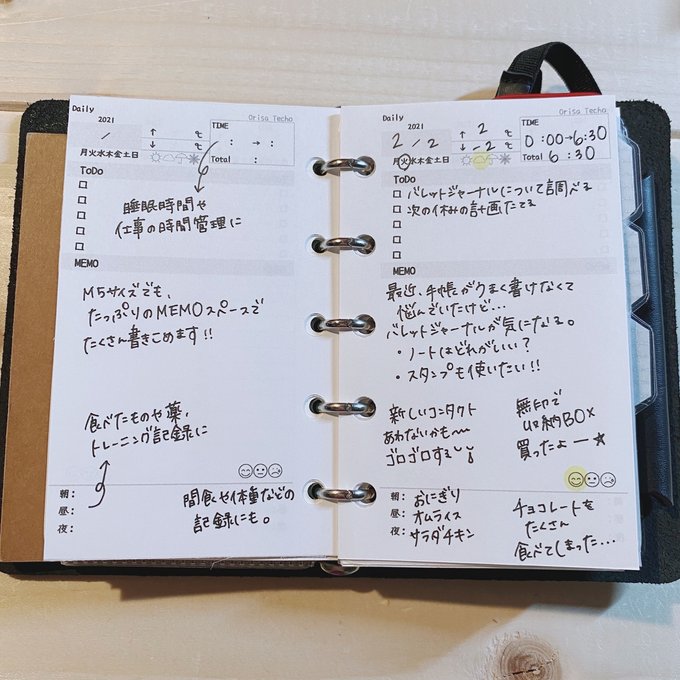 Daily
Orisa Techo
2021
/
↑ ℃
↓ ℃
TIME
: → :
Total :
月火水木金土日
ToDo
睡眠時間や
仕事の時間管理に
MEMO
M5サイズでも、
たっぷりのMEMOスペースで
たくさん書きこめます!!
食べたものや薬、
トレーニング記録に
朝:
昼:
夜:
間食や体重などの
記録にも。
Daily
Orisa Techo
2021
2 / 2
↑ 2 ℃
↓ -2 ℃
TIME
0:00→6:30
Total 6:30
月火水木金土日
ToDo
バレットジャーナルについて調べる
次の休みの計画たてる
MEMO
最近、手帳がうまく書けなくて
悩んでいたけど…
バレットジャーナルが気になる。
・ノートはどれがいい?
・スタンプも使いたい!!
新しいコンタクト
あわないかも〜
ゴロゴロする
無印で
収納BOX
買ったよー★
朝: おにぎり
昼: オムライス
夜: サラダチキン
チョコレートを
たくさん
食べてしまった…